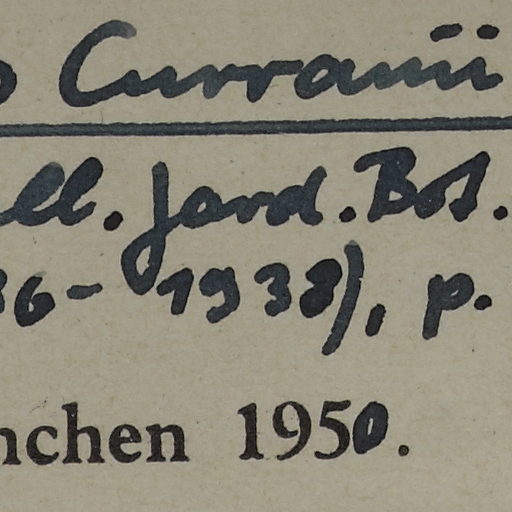 Curranii
ll. Jard. Bot.
36-1938), p.
nchen 1950.